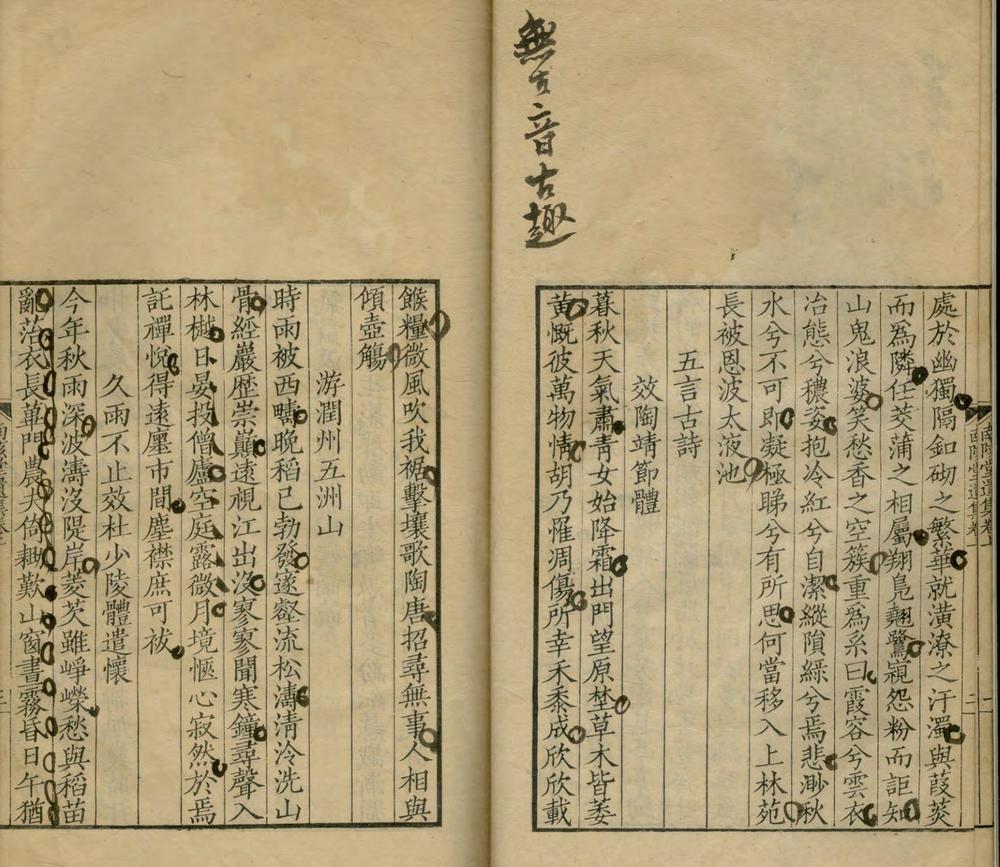 無古音古趣
處於幽獨隔釦砌之繁華就潢潦之汙濁與葭菼
而爲隣任茭蒲之相屬翔鳧翹鷺寵怨粉而詎知
山鬼浪婆笑愁香之空簇重爲系曰霞容兮雲衣
冶態兮穠姿抱冷紅兮自潔縱隕綠兮焉悲渺秋
水兮不可即凝極睇兮有所思何當移入上林苑
長被恩波太液池
五言古詩
效陶靖節體
暮秋天氣肅青女始降霜出門望原埜草木皆萎
黄慨彼萬物情胡乃罹凋傷所幸禾黍成欣欣載
餱糧微風吹我裾擊壤歌陶唐招尋無事人相與
傾壺觴
游潤州五洲山
時雨被西疇晚稻已勃發遠壑流松濤清泠洗山
骨經巖歷崇巔遠視江出没寥寥聞寒鐘尋聲入
林樾日晏投僧廬空庭露微月境愜心寂然於焉
託禪悅得遠廛市間塵襟庶可祓
久雨不止效杜少陵體遣懷
今年秋雨深波濤沒隄岸菱芡雖崢嶸愁與稻苗
亂落衣長蓽門農夫倚耡歎山窗書霧昏日午猶